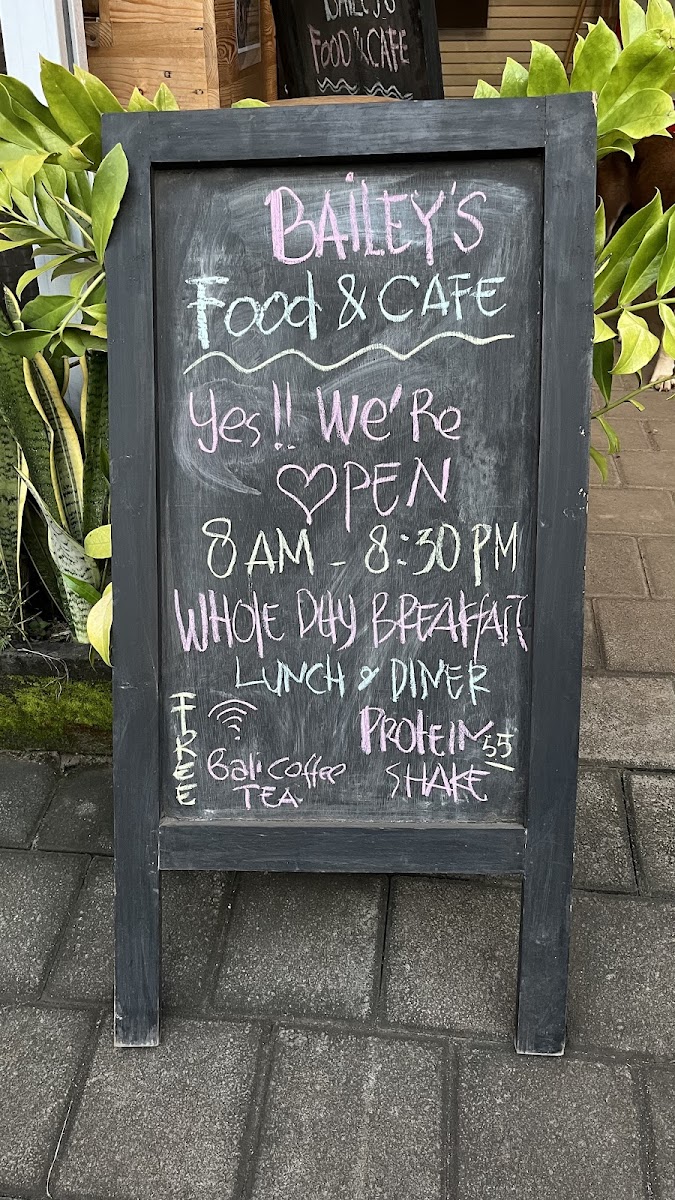 BAILEY'S
FOOD & CAFE
BAiLEY'S
Food & CAFE
Yes!! We'Re
OPEN
8 AM - 8:30 PM
WHOLE DAY BREAKFAST
LUNCH & DINER
FREE
Bali Coffee
TEA
PROTEIN 55
SHAKE